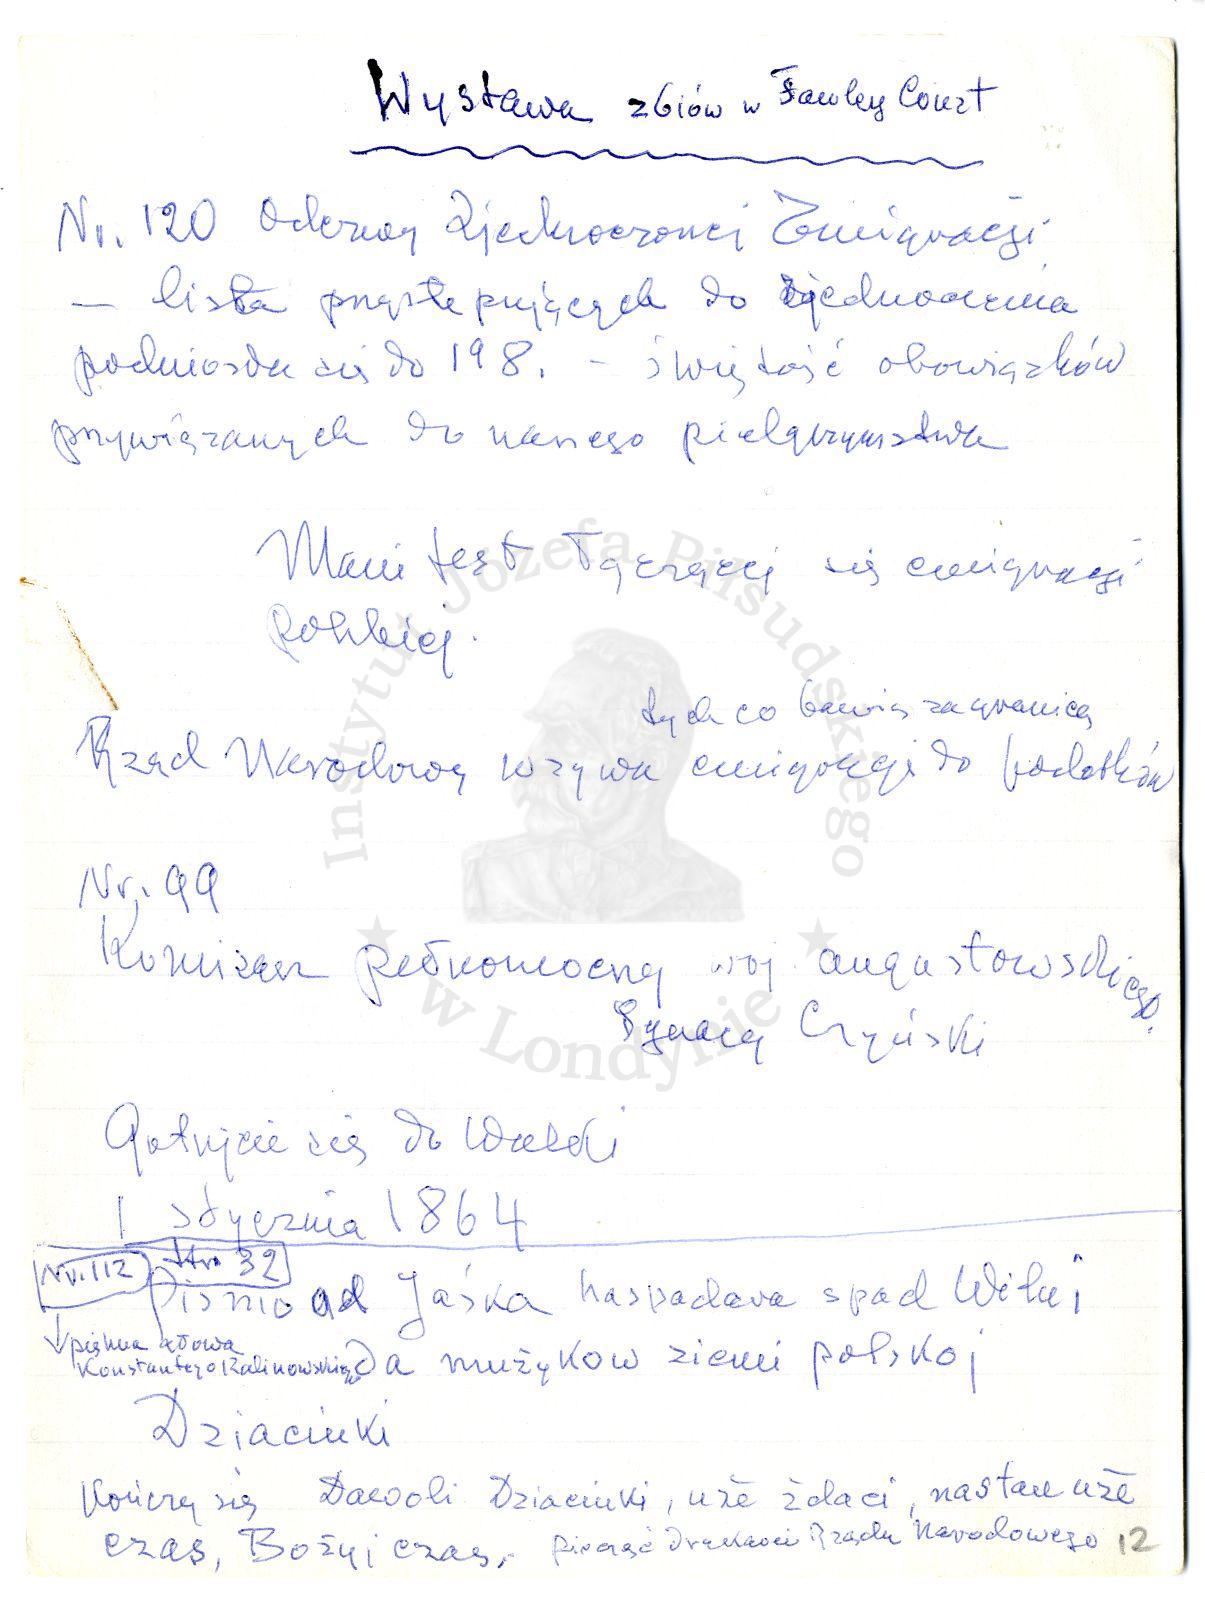 Wystawa zbiów w Fawley Court
Nr. 120 Odezwy Zjednoczonej Emigracji
— lista przystępujących do zjednoczenia
podniosła się do 198. — świętość obowiązków
przywiązanych do naszego pielgrzymstwa
Manifest Łączącej się emigracji
polskiej.
tych co bawią zagranicą
Rząd Narodowy wzywa emigrację do podatków
Nr. 99
Komisarz pełnomocny woj. augustowskiego.
Ignacy Czyński
Gotujcie się do Walki
1 stycznia 1864
Nr. 112 str. 32
Pismo ad Jaśka haspadara spad Wilni
↓ piękna słowa
Konstantego Kalinowskiego
Da mużykow ziemi polskoj
Dziaciuki
Kończy się Dawoli Dziaciuki, uże żdaci, nastau uże
czas, Bożyj czas, pieczęć Drukarni Rządu Narodowego 12
Instytut Józefa Piłsudskiego
★ w Londynie ★